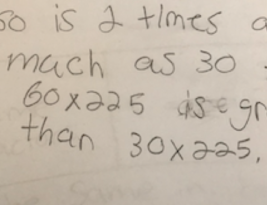 is 2 times
much as 30
60x225 is
than 30x225.